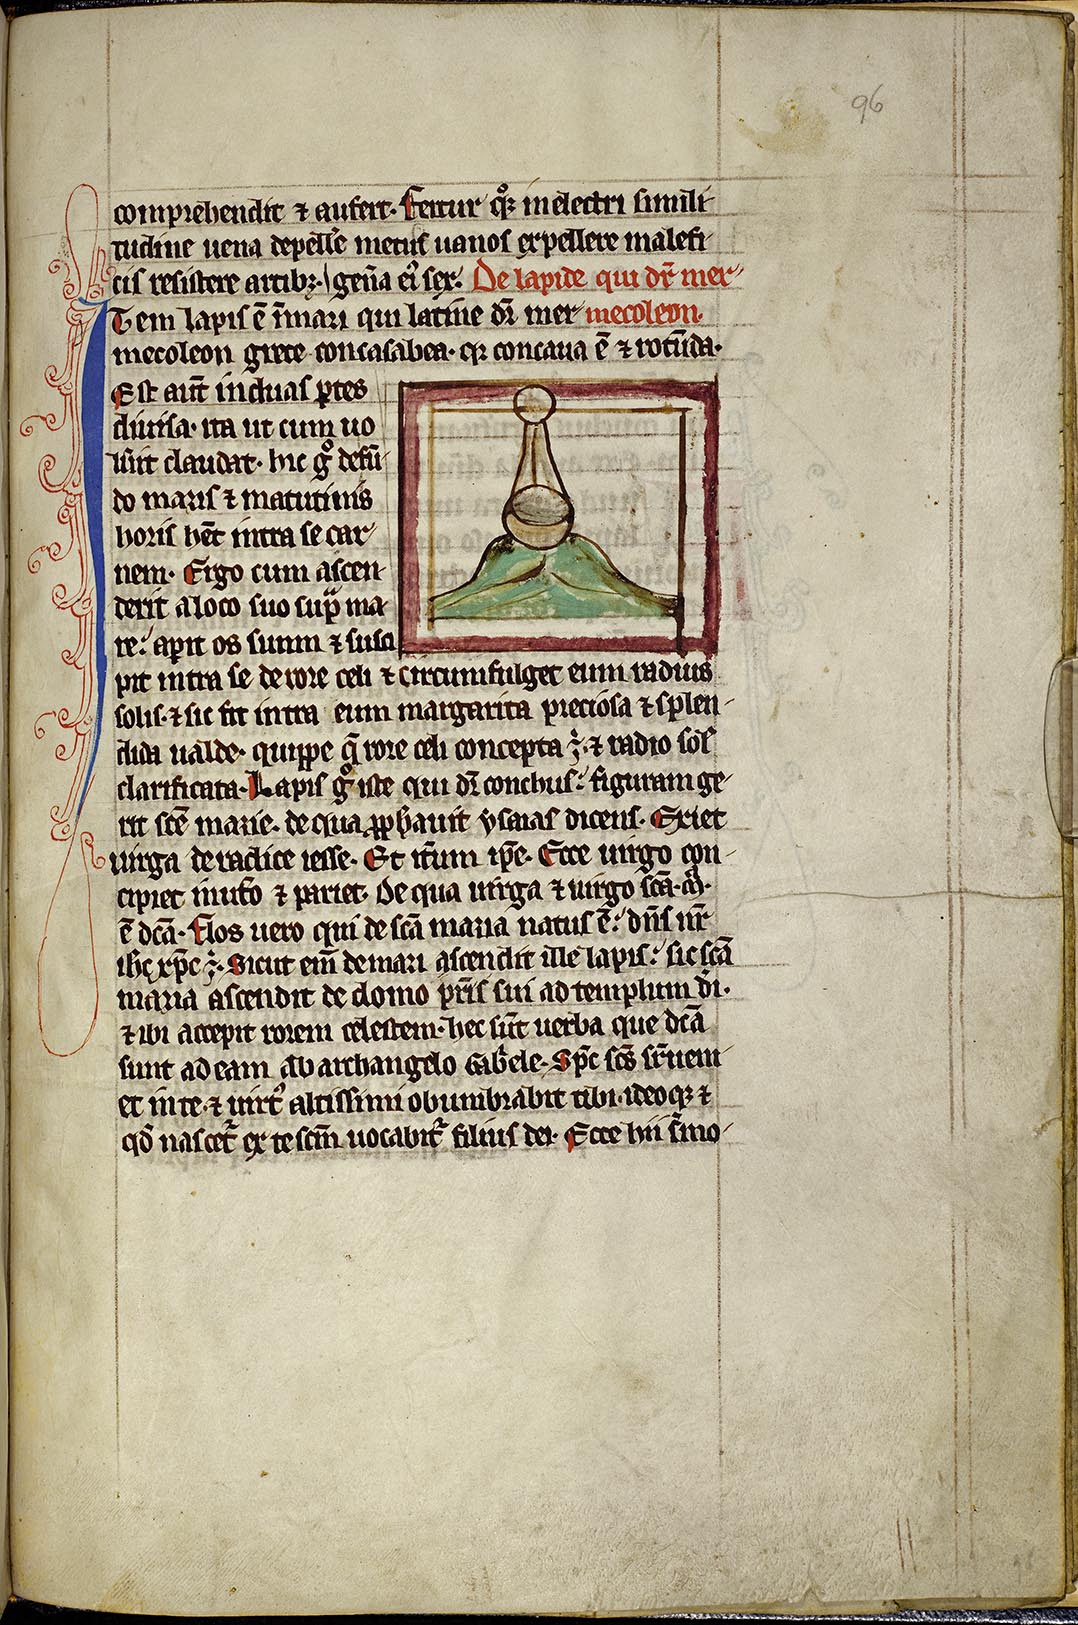 96
comprehendit ⁊ aufert. Fertur qͦꝫ in electri simili
tudine uena depelle metus uanos expellere malefi
ciis resistere artibꝫ. gen̄a ei᷒ sex. De lapide qui dr̄ mer
Item lapis ē ī mari qui latine dr̄ mer mecoleon.
mecoleon grece concasabea. qꝫ concaua ē ⁊ rotūda.
Est aut̄ in duas ꝑtes
diuisa. ita ut cum uo
lūit claudat. hic gͦ de fū
do maris ⁊ matutinis
horis hēt intra se car
nem. Ergo cum ascen
derit a loco suo supͣ ma
re. apit os suum ⁊ susci
pit intra se de rore celi ⁊ circumfulget eum radius
solis. ⁊ sic fit intra eum margarita preciosa ⁊ splen
dida ualde. quippe q̄ rore celi concepta ē. ⁊ radio sol̄
clarificata. Lapis gͦ iste qui dr̄ conchus. figuram ge
rit sc̄e marie. de qua ꝓph̄auit ysaias dicens. Exiet
uirga de radice iesse. Et it̄um ip̄e. Ecce uirgo con
cipiet in ut̄o ⁊ pariet. De qua uirga ⁊ uirgo sc̄a .m̄.
ē dc̄a. Flos uero qui de sc̄a maria natus ē. dn̄s nr̄
ihc̄ xp̄c ē. Sicut em̄ de mari ascendit ille lapis. sic sc̄a
maria ascendit de domo pr̄is sui ad templum di̅.
⁊ ibi accepit rorem celestem. hec sūt uerba que dc̄a
sunt ad eam ab archangelo Gab̄ele. Sp̄c sc̄s sr̄ueni
et in te. ⁊ uirt᷒ altissimi obumbrabit tibi. ideoqꝫ ⁊
qd̄ nascet᷑ ex te sc̄m uocabit᷑ filius dei. Ecce hii s̄mo